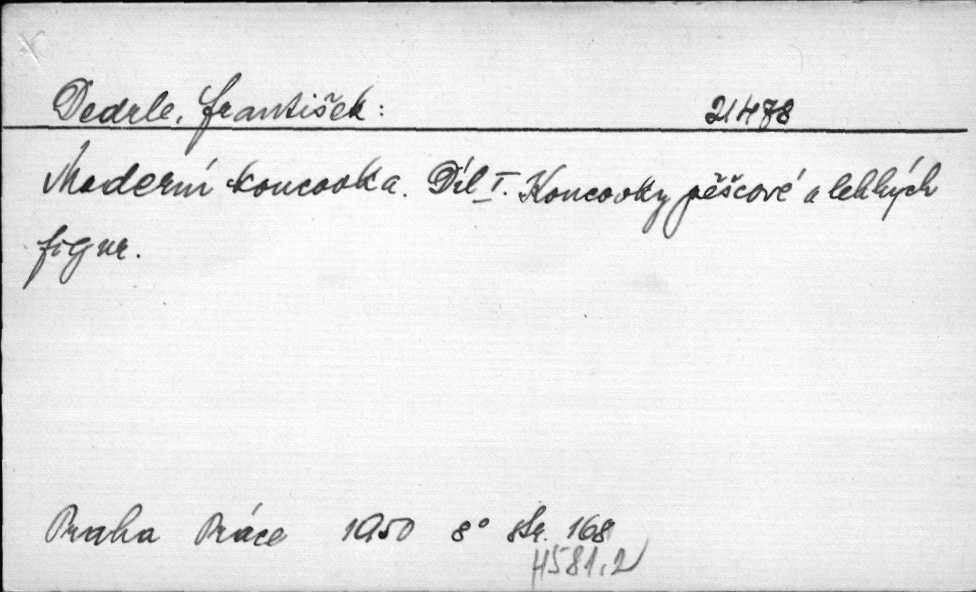 Dedrle, František: 21478
Moderní koncovka. Díl I. Koncovky pěšcové a lehkých
figur.
Praha Práce 1950 8° str. 168
H581,2